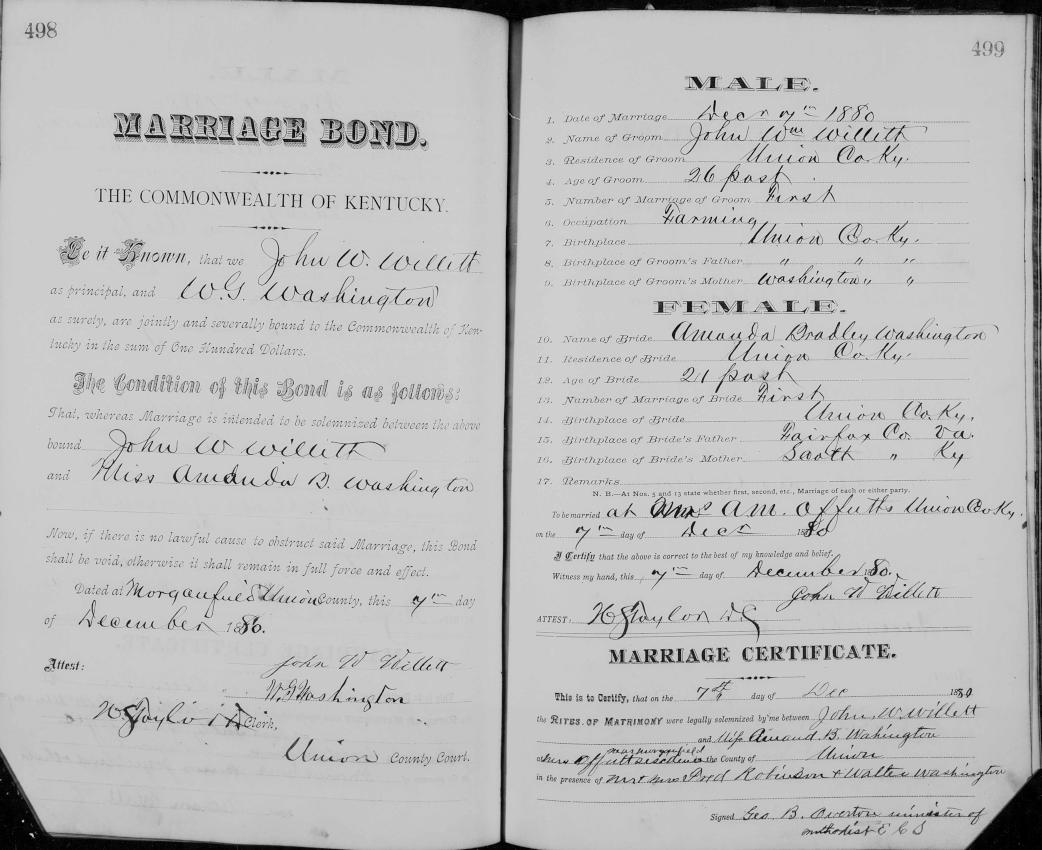 498
MARRIAGE BOND.
THE COMMONWEALTH OF KENTUCKY.
Be it Known, that we John W. Willett
as principal, and W. G. Washington
as surety, are jointly and severally bound to the Commonwealth of Ken-
tucky in the sum of One Hundred Dollars.
The Condition of this Bond is as follows:
That, whereas Marriage is intended to be solemnized between the above
bound John W Willett
and Miss Amanda B. Washington
Now, if there is no lawful cause to obstruct said Marriage, this Bond
shall be void, otherwise it shall remain in full force and effect.
Dated at Morganfield Union County, this 7th day
of December 1880.
Attest: John W Willett
W. G Washington
Taylor Clerk,
Union County Court.
499
MALE.
1. Date of Marriage Decr 7th 1880
2. Name of Groom John Wm Willett
3. Residence of Groom Union Co. Ky.
4. Age of Groom 26 past
5. Number of Marriage of Groom First
6. Occupation Farming
7. Birthplace Union Co. Ky.
8. Birthplace of Groom's Father " " "
9. Birthplace of Groom's Mother Washington " "
FEMALE.
10. Name of Bride Amanda Bradley Washington
11. Residence of Bride Union Co. Ky.
12. Age of Bride 21 past
13. Number of Marriage of Bride First
14. Birthplace of Bride Union Co. Ky.
15. Birthplace of Bride's Father Fairfax Co. Va.
16. Birthplace of Bride's Mother Scott " Ky
17. Remarks
N. B.—At Nos. 5 and 13 state whether first, second, etc., Marriage of each or either party.
To be married at Mrs A M. Offutts Union Co Ky.
on the 7th day of Decr 1880
I Certify that the above is correct to the best of my knowledge and belief.
Witness my hand, this 7th day of December 1880.
John W Willett
ATTEST: Taylor DC
MARRIAGE CERTIFICATE.
This is to Certify, that on the 7th day of Dec 1880
the RITES OF MATRIMONY were legally solemnized by me between John W. Willett
and Miss Amand. B. Wahington
near morganfield
at Mrs Offutts the County of Union
in the presence of Mr & Mrs Robinson & Walter Washington
Signed Geo. B. Overton minister of
methodist E C S